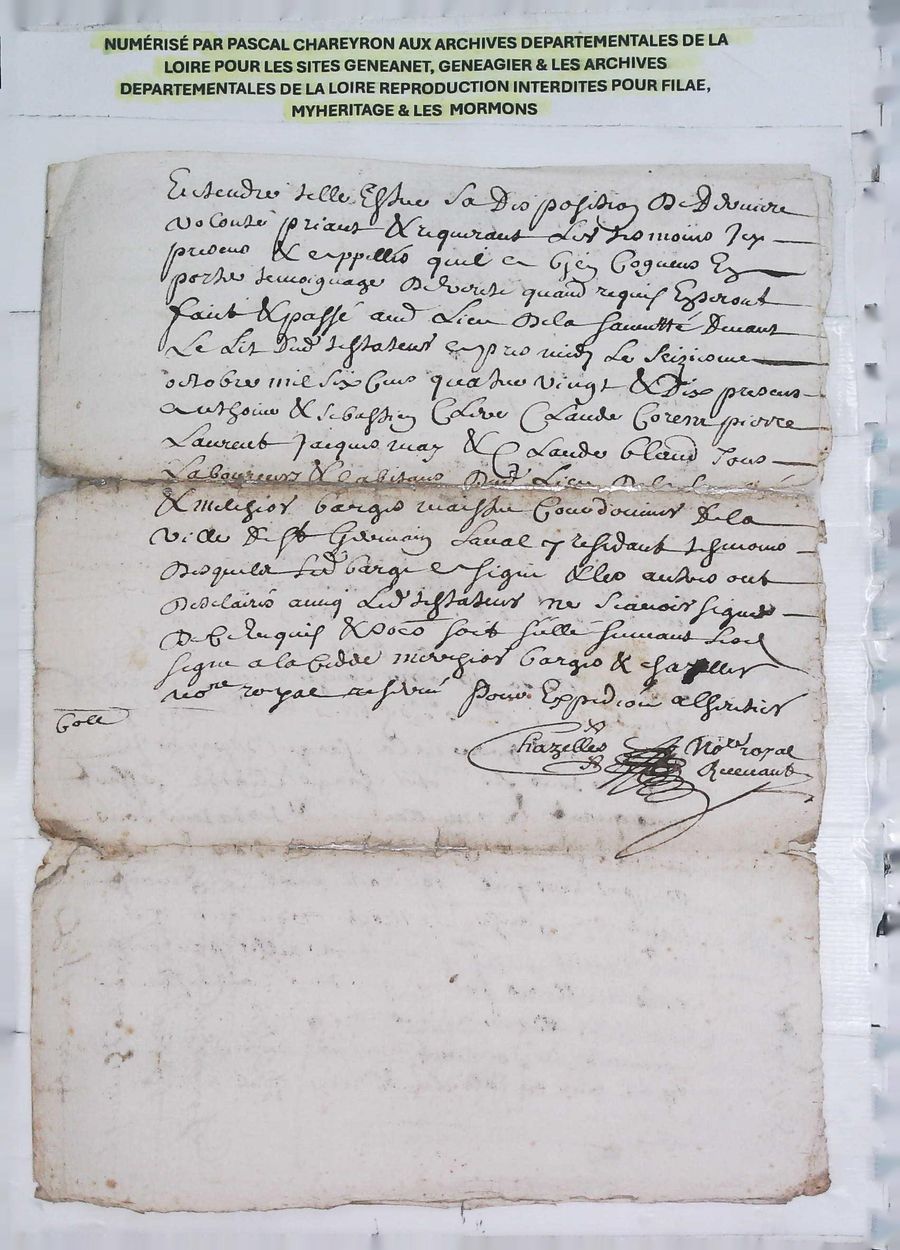 NUMÉRISÉ PAR PASCAL CHAREYRON AUX ARCHIVES DEPARTEMENTALES DE LA
LOIRE POUR LES SITES GENEANET, GENEAGIER & LES ARCHIVES
DEPARTEMENTALES DE LA LOIRE REPRODUCTION INTERDITES POUR FILAE,
MYHERITAGE & LES MORMONS
Entendre telle Estre sa Disposition De Derniere
volonté priant & requerant Les tesmoins Icy
presens & appelles quil a
porter temoignage De verité quand requis En seront
faict & passé aud Lieu De la Devant
Le Lit Dud testateur apres midy Le seiziesme
octobre mil six cens quatre vingt & Dix presens
Anthoine & Sebastien Claude pierre
Laurent Jacques & Claude bland Tous
Laboureurs & habitans Dud Lieu De la
& melchior barge maistre Courdonnier De la
ville De st Germain Laval y residant tesmoins
Desquels Led barge a signé & les autres ont
Desclairés ainsy Led testateur ne scavoir signer
De Ce Requis & soit sellé suivant Led
signé a la Cedde melchior barge & chazelles
no.re royal Pour Expedition
Coll
Chazelles No.re royal